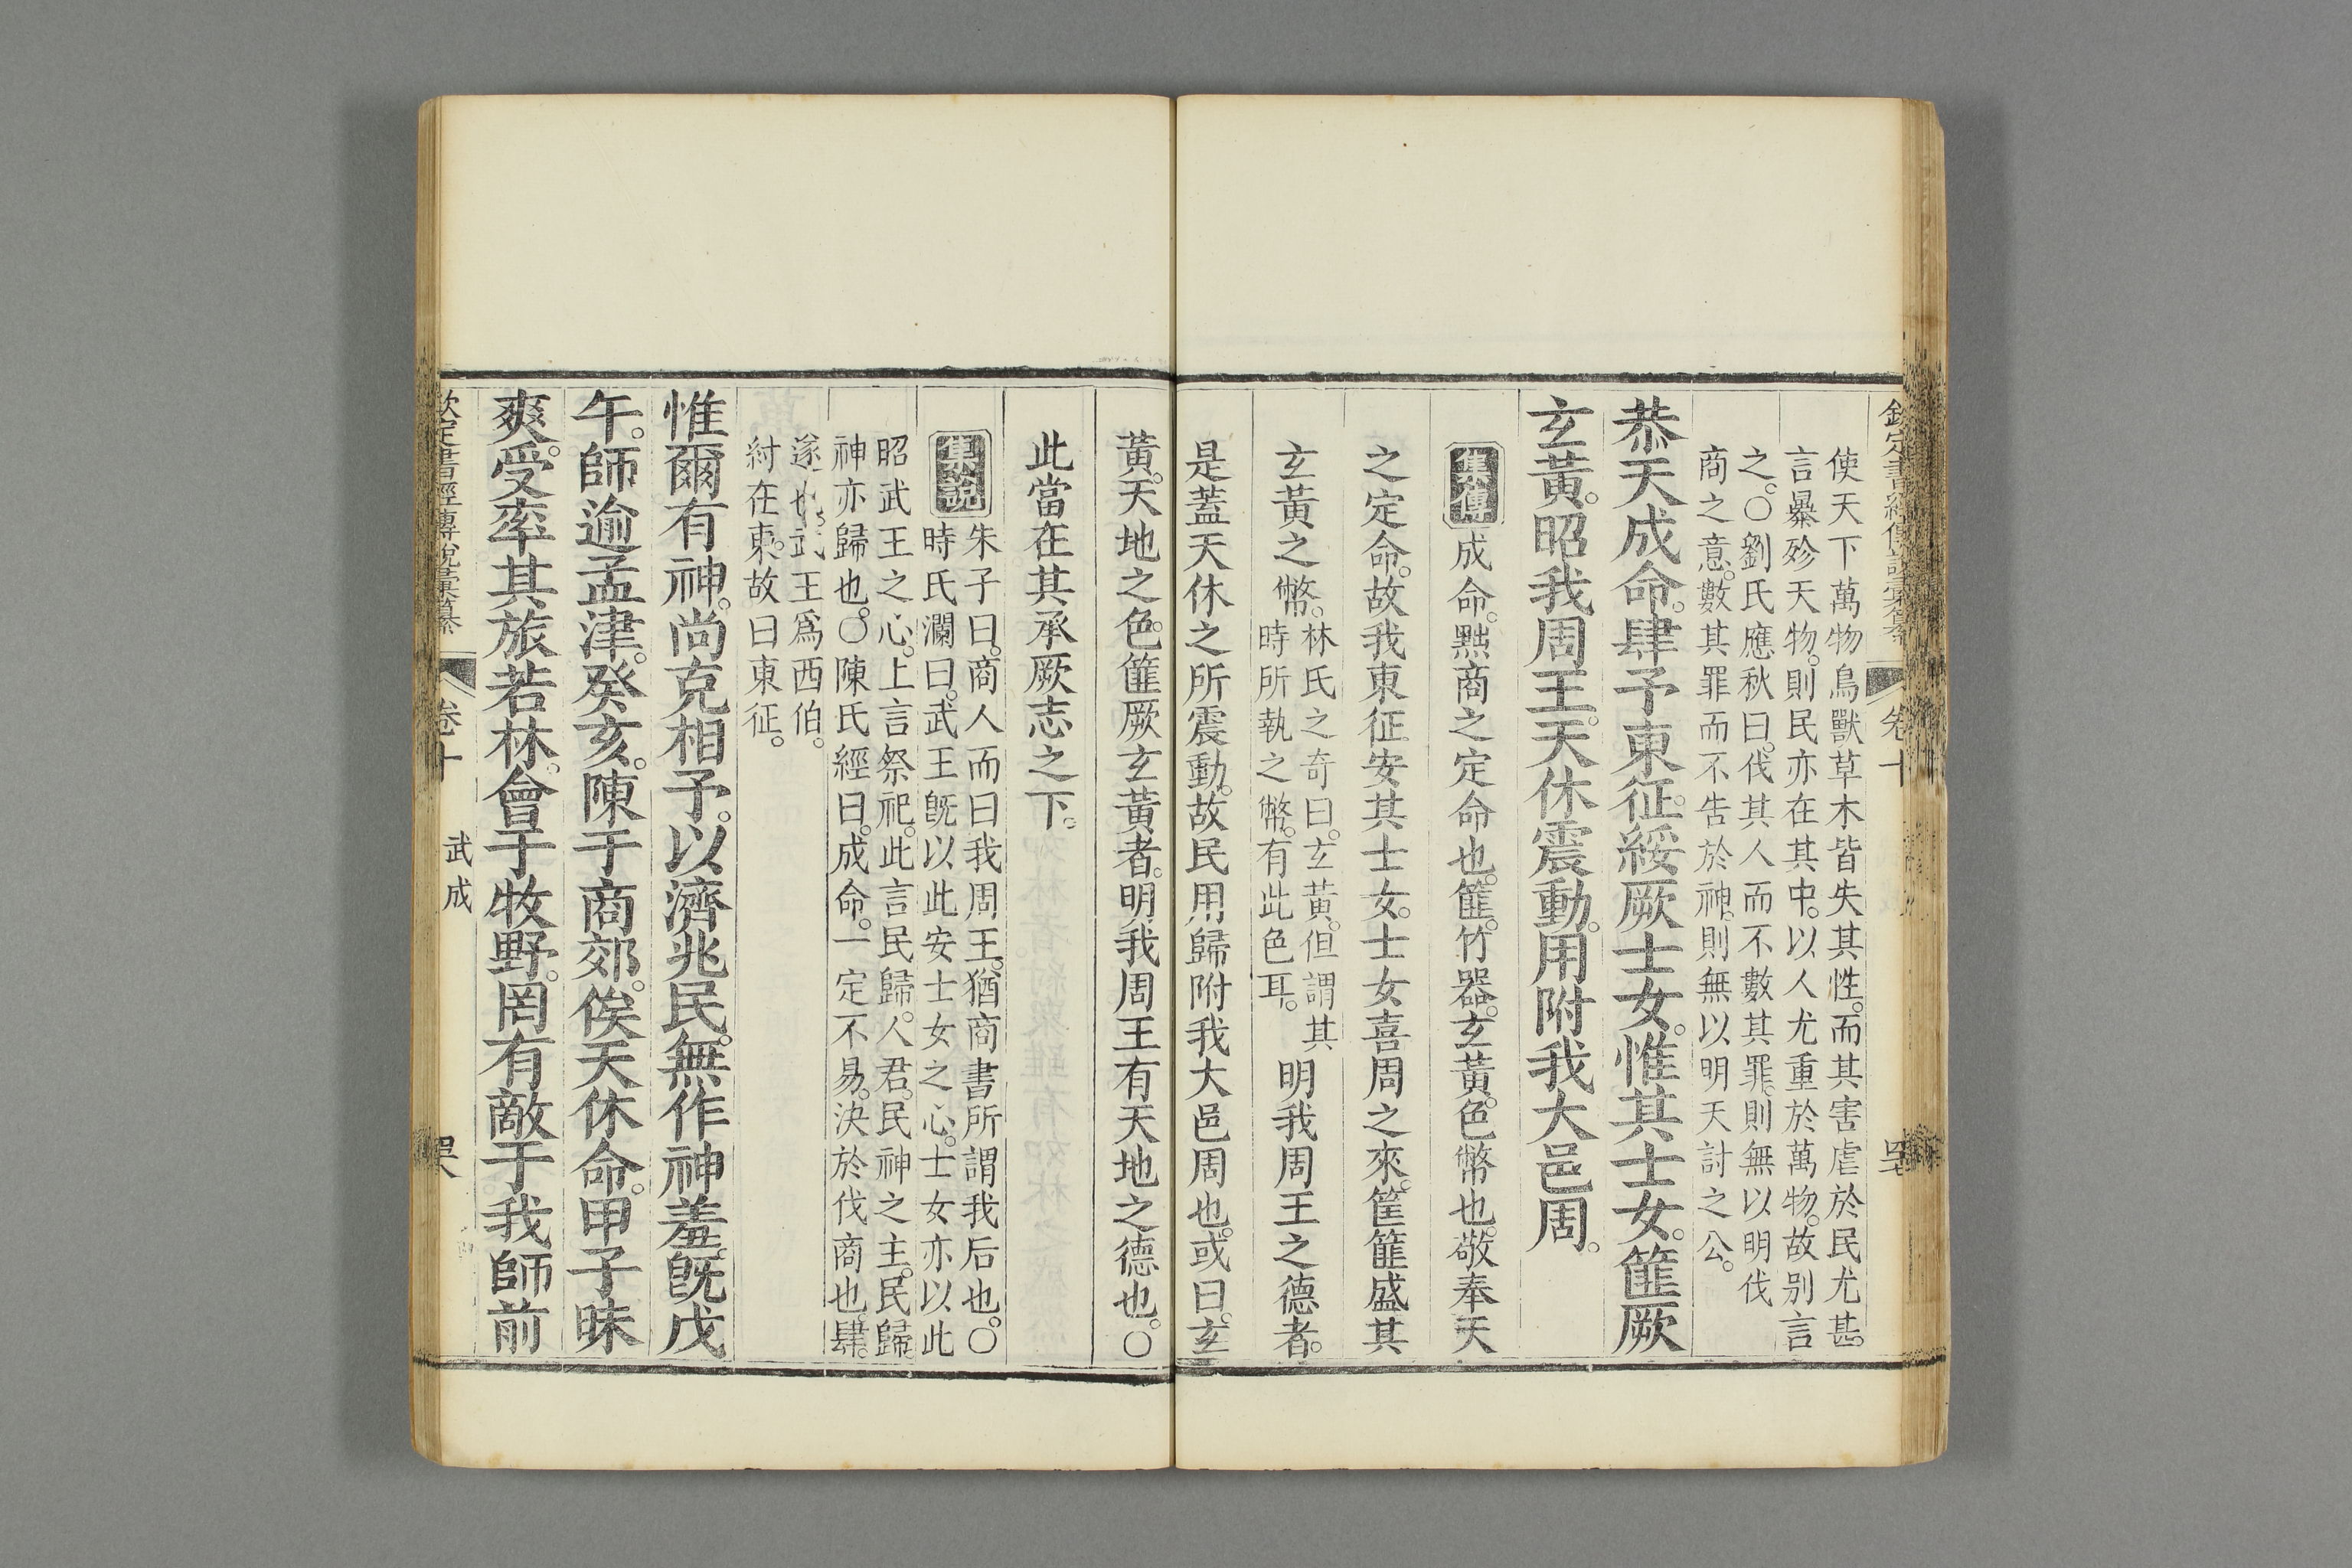 欽定書經傳說彙纂 卷十
使天下萬物鳥獸草木皆失其性。而其害虐於民尤甚。
言暴殄天物。則民亦在其中。以人尤重於萬物。故别言
之。○劉氏應秋曰。伐其人而不數其罪。則無以明伐
商之意。數其罪而不告於神。則無以明天討之公。
恭天成命。肆予東征。綏厥士女。惟其士女。篚厥
玄黃。昭我周王。天休震動。用附我大邑周。
集傳 成命。黜商之定命也。篚。竹器。玄黃。色幣也。敬奉天
之定命。故我東征安其士女。士女喜周之來。筐篚盛其
玄黃之幣。
林氏之奇曰。玄黃。但謂其
時所執之幣。有此色耳。
明我周王之德者。
是蓋天休之所震動。故民用歸附我大邑周也。或曰。玄
黃。天地之色。篚厥玄黃者。明我周王有天地之德也。○
此當在其承厥志之下。
集說 朱子曰。商人而曰我周王。猶商書所謂我后也。○
時氏瀾曰。武王旣以此安士女之心。士女亦以此
昭武王之心。上言祭祀。此言民歸。人君。民神之主。民歸。
神亦歸也。○陳氏經曰。成命。一定不易。決於伐商也。肆。
遂也。武王爲西伯。
紂在東。故曰東征。
惟爾有神。尚克相予。以濟兆民。無作神羞。旣戊
午。師逾孟津。癸亥。陳于商郊。俟天休命。甲子昧
爽。受率其旅若林。會于牧野。罔有敵于我師。前
欽定書經傳說彙纂 卷十 武成